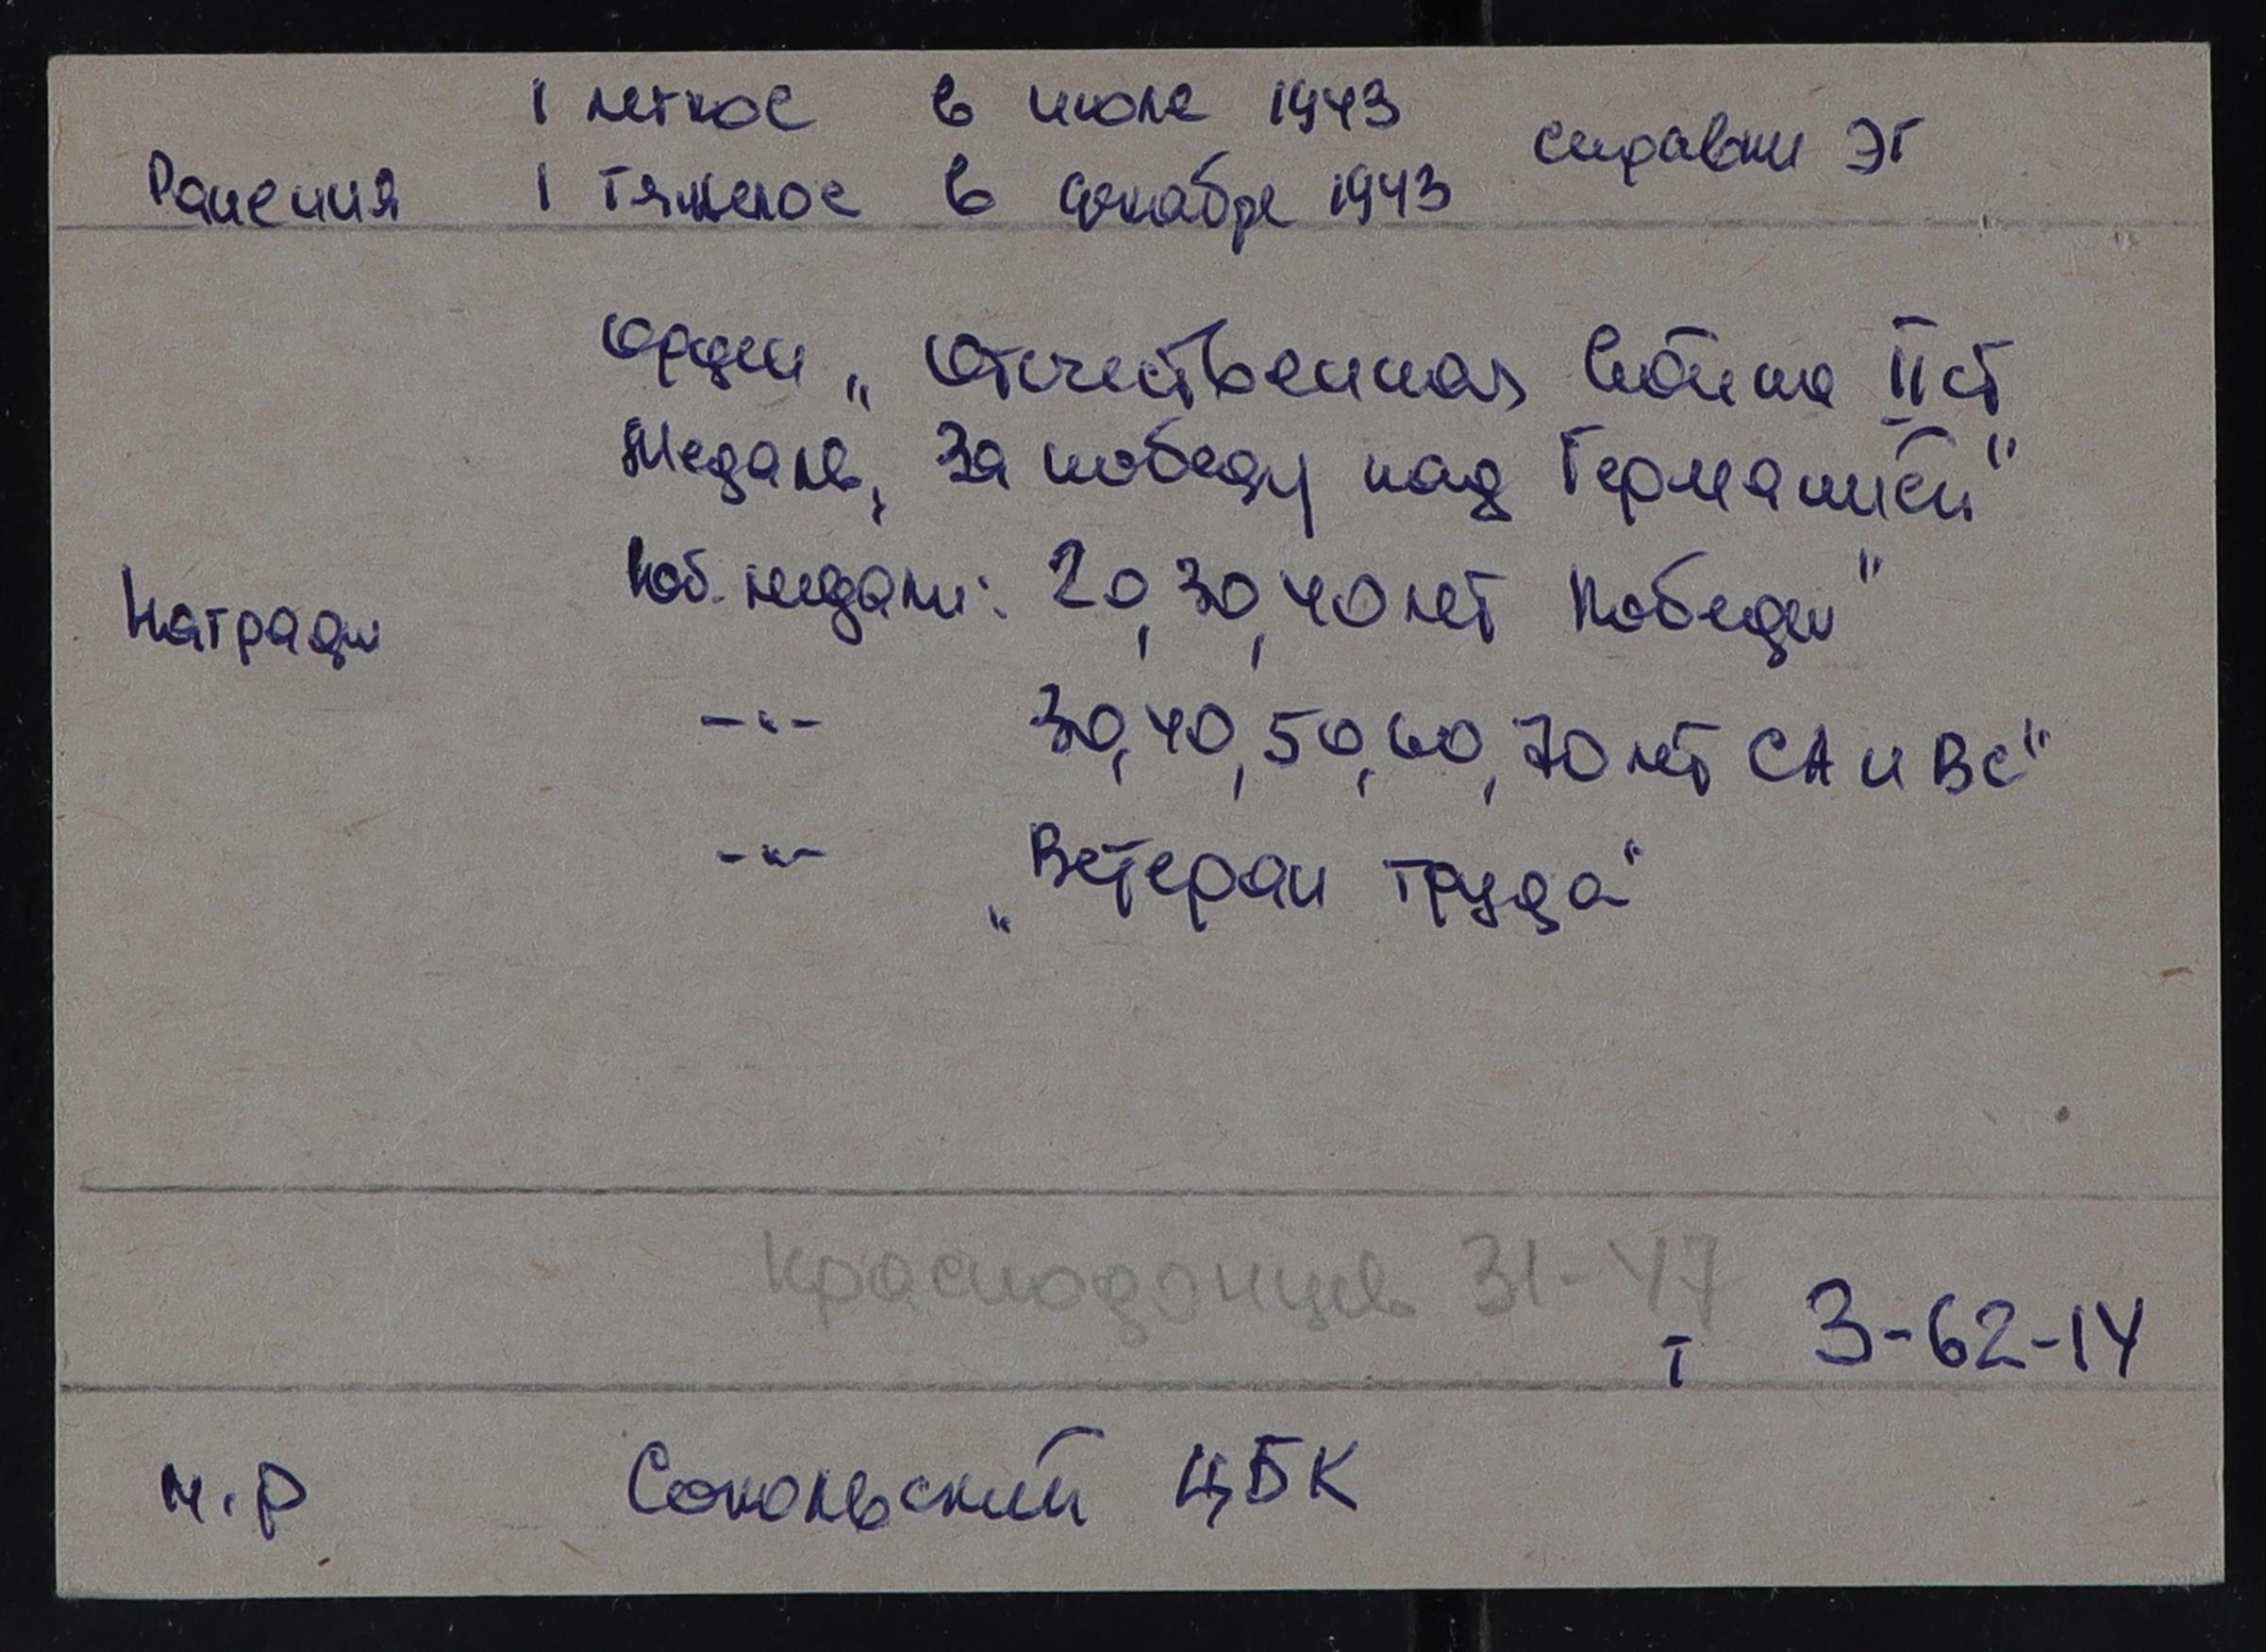 1 легкое в июле 1943
справки ЭГ
Ранения 1 тяжелое в декабре 1943
Орден „Отечественная война II ст
Медаль „За победу над Германией"
Юб. медали: 20, 30, 40 лет Победы"
Награды
-"- 30, 40, 50, 60, 70 лет СА и ВС"
-"- „Ветеран труда"
Краснодонцев 31-47
т 3-62-14
м.р Сокольский ЦБК